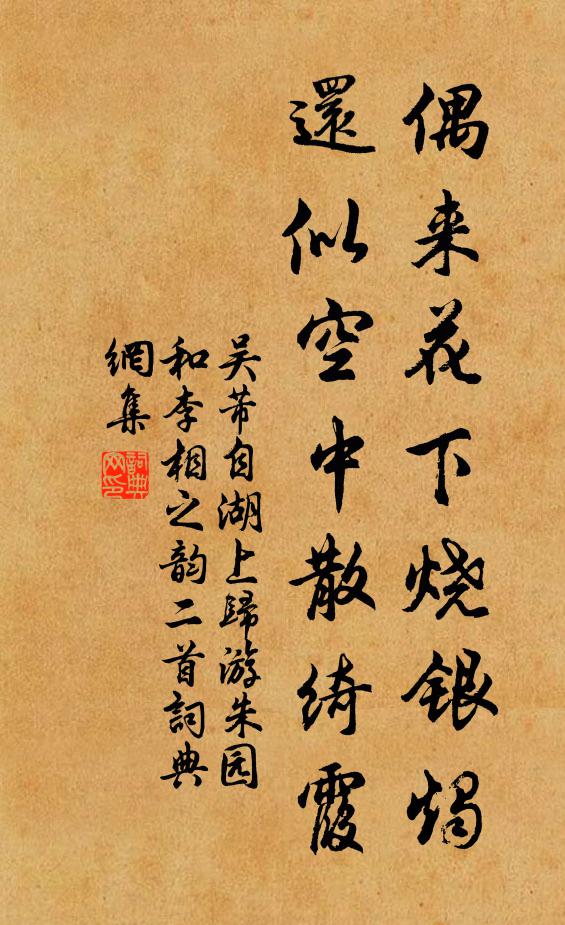 偶来花下烧银烛
還似空中散绮霞
吴芾自湖上歸游朱园
和李相之韵二首詞典
網集
詞典
网印